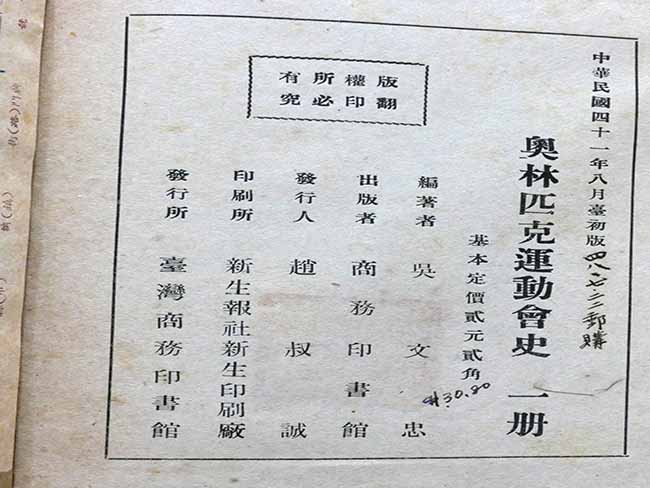 中華民國四十一年八月臺初版 四八、七、二二郵購
奧林匹克運動會史 一册
基本定價貳元貳角
30.80
編著者 吳文忠
出版者 商務印書館
發行人 趙叔誠
印刷所 新生報社新生印刷廠
發行所 臺灣商務印書館
版權所有
翻印必究